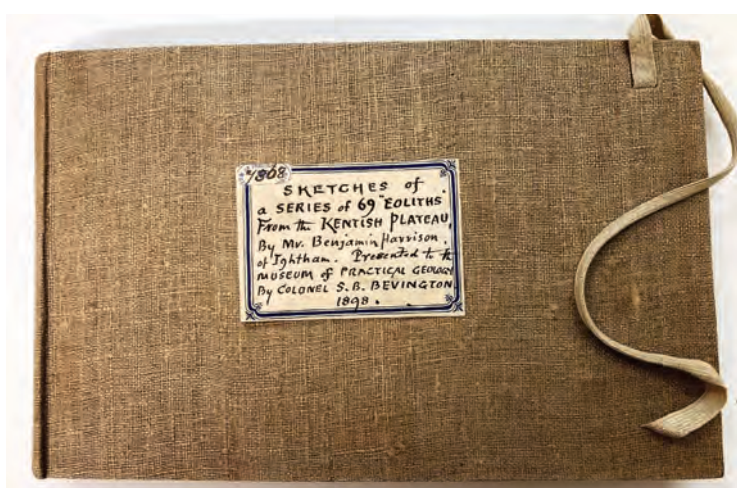 1868
SKETCHES of
a SERIES of 69 "EOLITHS
From the KENTISH PLATEAU,
By Mr. Benjamin Harrison,
of Ightham. Presented to the
MUSEUM of PRACTICAL GEOLOGY
By COLONEL S. B. BEVINGTON.
1898.